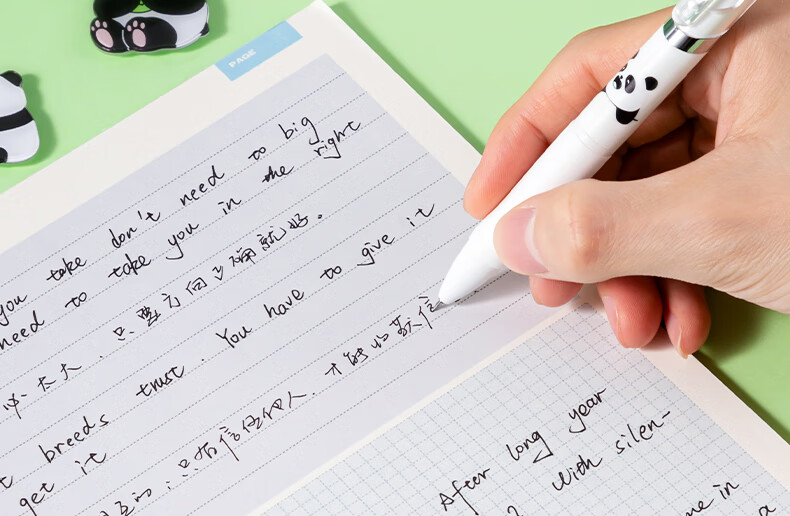 PAGE
you take don't need to big
need to take you in the right
必太大,只要方向正确就好。
breeds trust. You have to give it
get it
只有信任他人,才能收获信
After long year
with silen-
me in
a